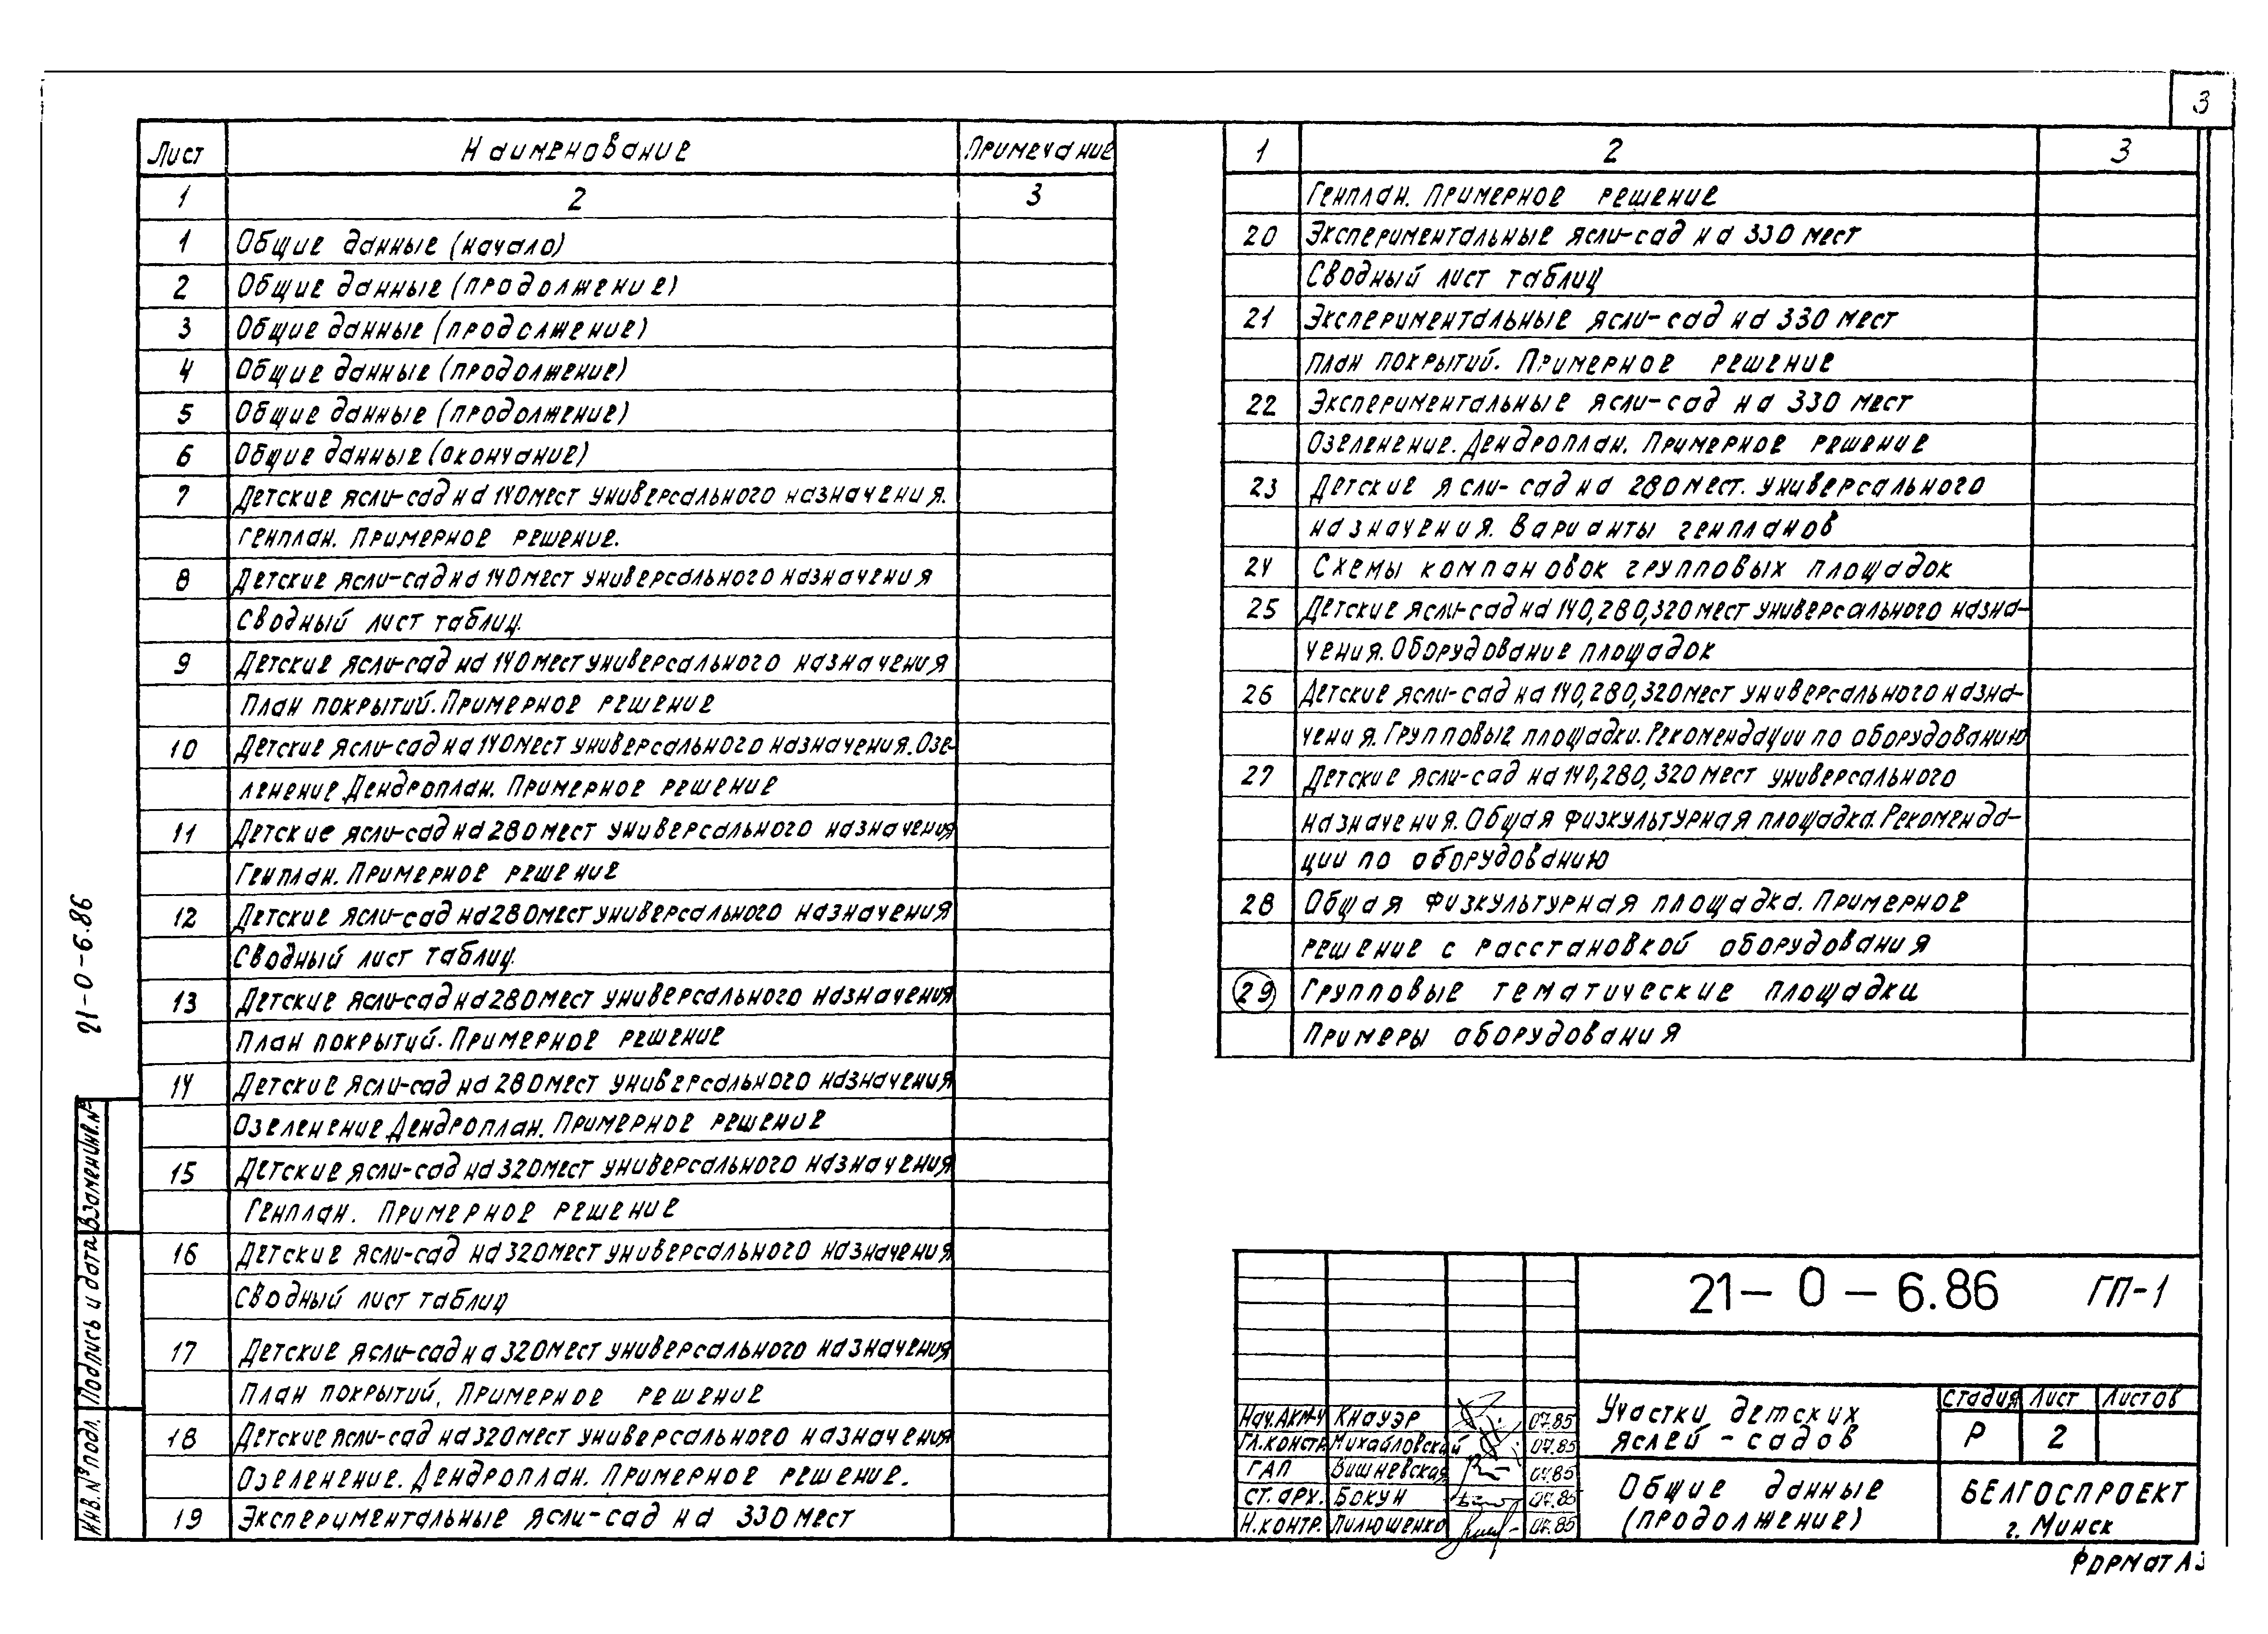 3
Лист Наименование Примечание
1 2 3
1 Общие данные (начало)
2 Общие данные (продолжение)
3 Общие данные (продолжение)
4 Общие данные (продолжение)
5 Общие данные (продолжение)
6 Общие данные (окончание)
7 Детские ясли-сад на 140 мест универсального назначения.
Генплан. Примерное решение.
8 Детские ясли-сад на 140 мест универсального назначения
Сводный лист таблиц.
9 Детские ясли-сад на 140 мест универсального назначения
План покрытий. Примерное решение
10 Детские ясли-сад на 140 мест универсального назначения. Озе-
ленение Дендроплан. Примерное решение
11 Детские ясли-сад на 280 мест универсального назначения
Генплан. Примерное решение
12 Детские ясли-сад на 280 мест универсального назначения
Сводный лист таблиц.
13 Детские ясли-сад на 280 мест универсального назначения
План покрытий. Примерное решение
14 Детские ясли-сад на 280 мест универсального назначения
Озеленение Дендроплан. Примерное решение
15 Детские ясли-сад на 320 мест универсального назначения
Генплан. Примерное решение
16 Детские ясли-сад на 320 мест универсального назначения
Сводный лист таблиц
17 Детские ясли-сад на 320 мест универсального назначения
План покрытий, Примерное решение
18 Детские ясли-сад на 320 мест универсального назначения
Озеленение. Дендроплан. Примерное решение.
19 Экспериментальные ясли-сад на 330 мест
1 2 3
Генплан. Примерное решение
20 Экспериментальные ясли-сад на 330 мест
Сводный лист таблиц
21 Экспериментальные ясли-сад на 330 мест
план покрытий. Примерное решение
22 Экспериментальные ясли-сад на 330 мест
Озеленение. Дендроплан. Примерное решение
23 Детские ясли-сад на 280 мест. универсального
назначения. Варианты генпланов
24 Схемы компановок групповых площадок
25 Детские ясли-сад на 140, 280, 320 мест универсального назна-
чения. Оборудование площадок
26 Детские ясли-сад на 140, 280, 320 мест универсального назна-
чения. Групповые площадки. Рекомендации по оборудованию
27 Детские ясли-сад на 140, 280, 320 мест универсального
назначения. Общая физкультурная площадка. Рекоменда-
ции по оборудованию
28 Общая физкультурная площадка. Примерное
решение с расстановкой оборудования
29 Групповые тематические площадки
Примеры оборудования
21-0-6.86
Взамен инв. №
Подпись и дата
Инв. № подл.
21-0-6.86 ГП-1
Нач. АКМ-4 Кнауэр 07.85
Гл. констр. Михайловский 07.85
ГАП Вишневская 07.85
Ст. арх. Бокун 07.85
Н. контр. Пилюшенко 07.85
Участки детских
яслей-садов
Стадия Лист Листов
Р 2
Общие данные
(продолжение)
БЕЛГОСПРОЕКТ
г. Минск
Формат А3